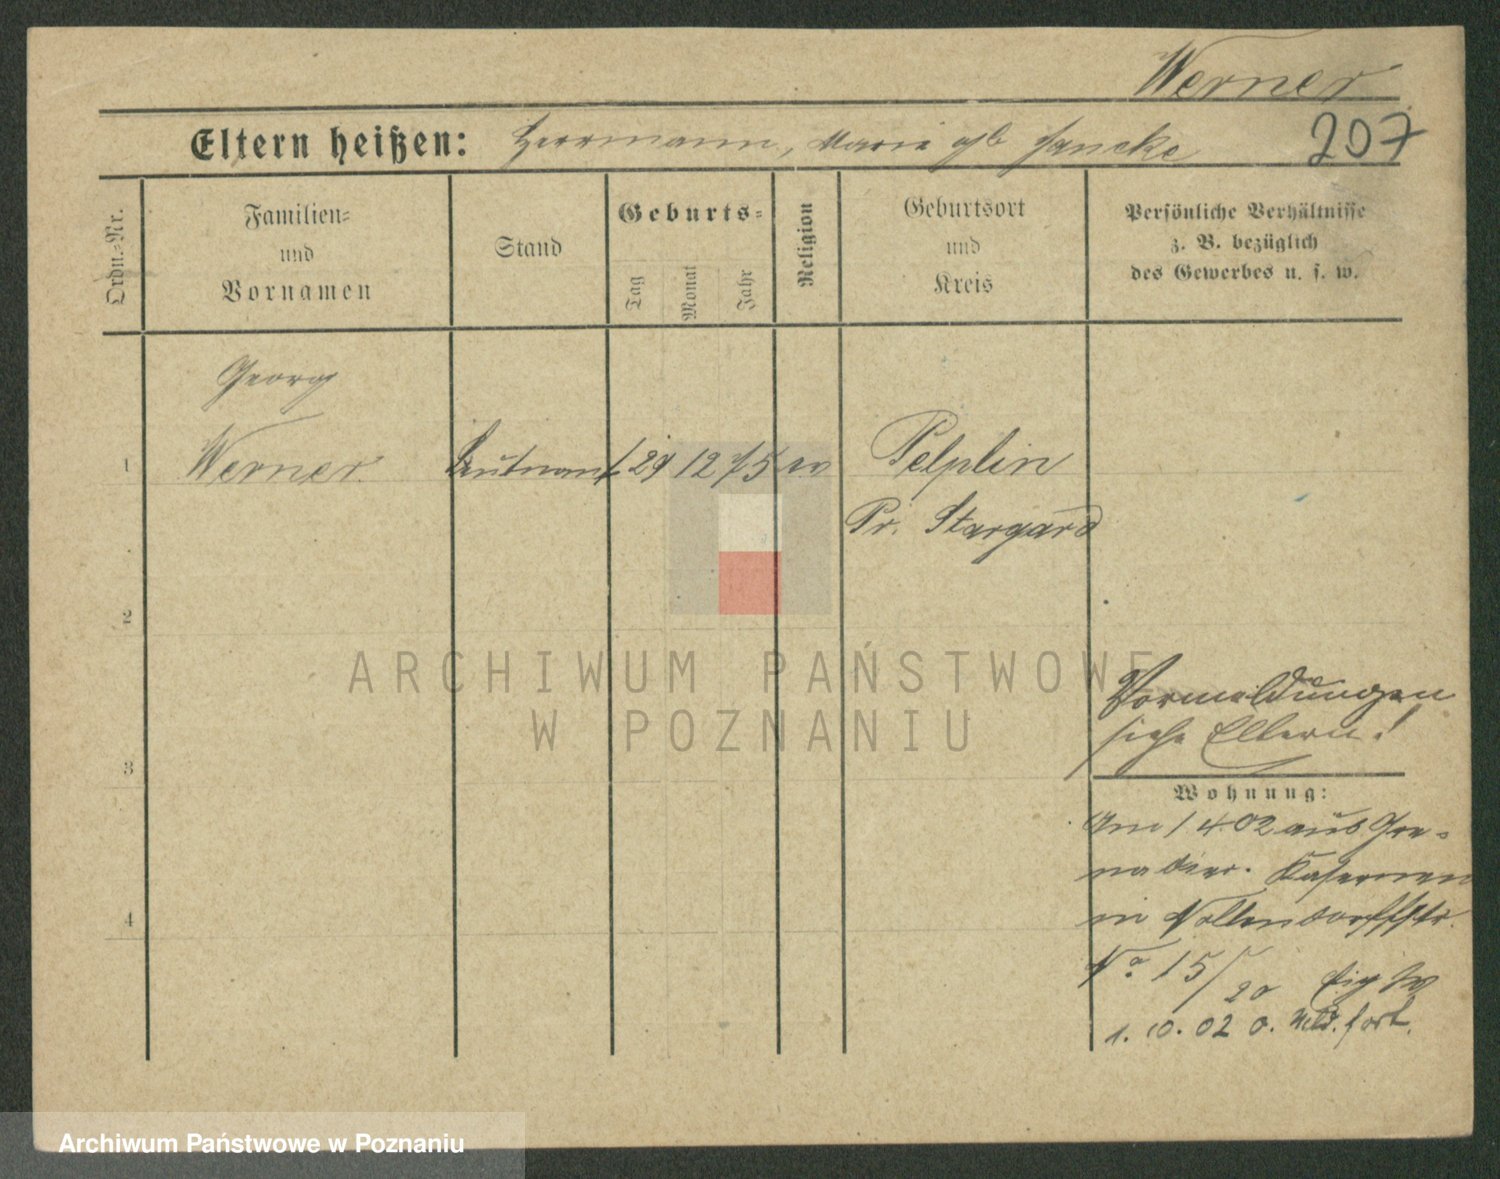 Werner
Eltern heißen: Herrmann, Marie geb Jancke
207
Ordn.-Nr.
Familien-
und
Vornamen
Stand
Geburts-
Tag
Monat
Jahr
Religion
Geburtsort
und
Kreis
Persönliche Verhältnisse
z. B. bezüglich
des Gewerbes u. s. w.
Georg
1 Werner Leutnant 29 12 75 ev Pelplin
Pr. Stargard
2
3
4
Vormeldungen
siehe Eltern!
Wohnung:
Am 1 4 02 aus Gre-
nadier. Kasernen
in Nollendorffstr.
No 15/20 eig W
1. 10. 02 o. Meld. fort.
ARCHIWUM PAŃSTWOWE
W POZNANIU
Archiwum Państwowe w Poznaniu